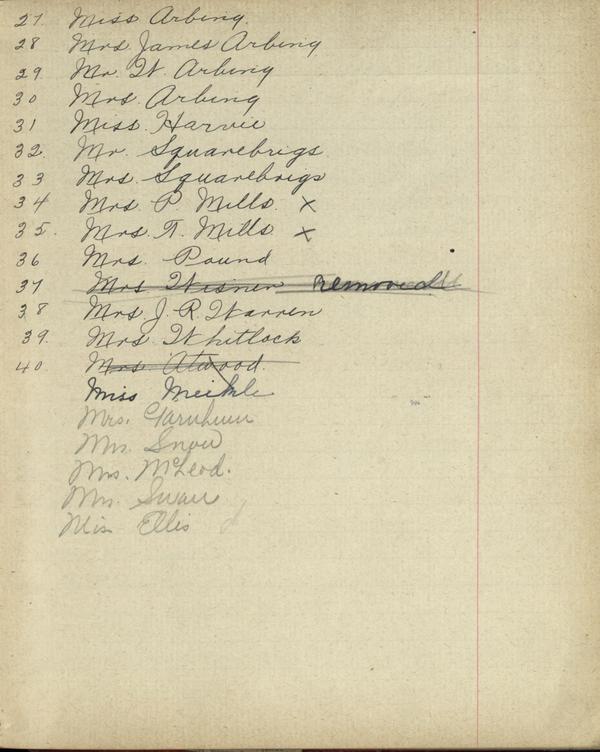 27. Miss Arbing.
28 Mrs James Arbing
29 Mr. W. Arbing
30 Mrs. Arbing
31 Miss. Harvie
32. Mr. Squarebrigs.
33 Mrs. Squarebrigs
34 Mrs. P. Mills. x
35. Mrs. T. Mills x
36 Mrs. Pound
37 Mrs Wisner Removed
38 Mrs J. R. Warren
39. Mrs. Whitlock
40 Mrs. Atwood.
Miss Meikle
Mrs.
Mrs. Snow
Mrs. McLeod.
Mrs. Swan
Miss Ellis